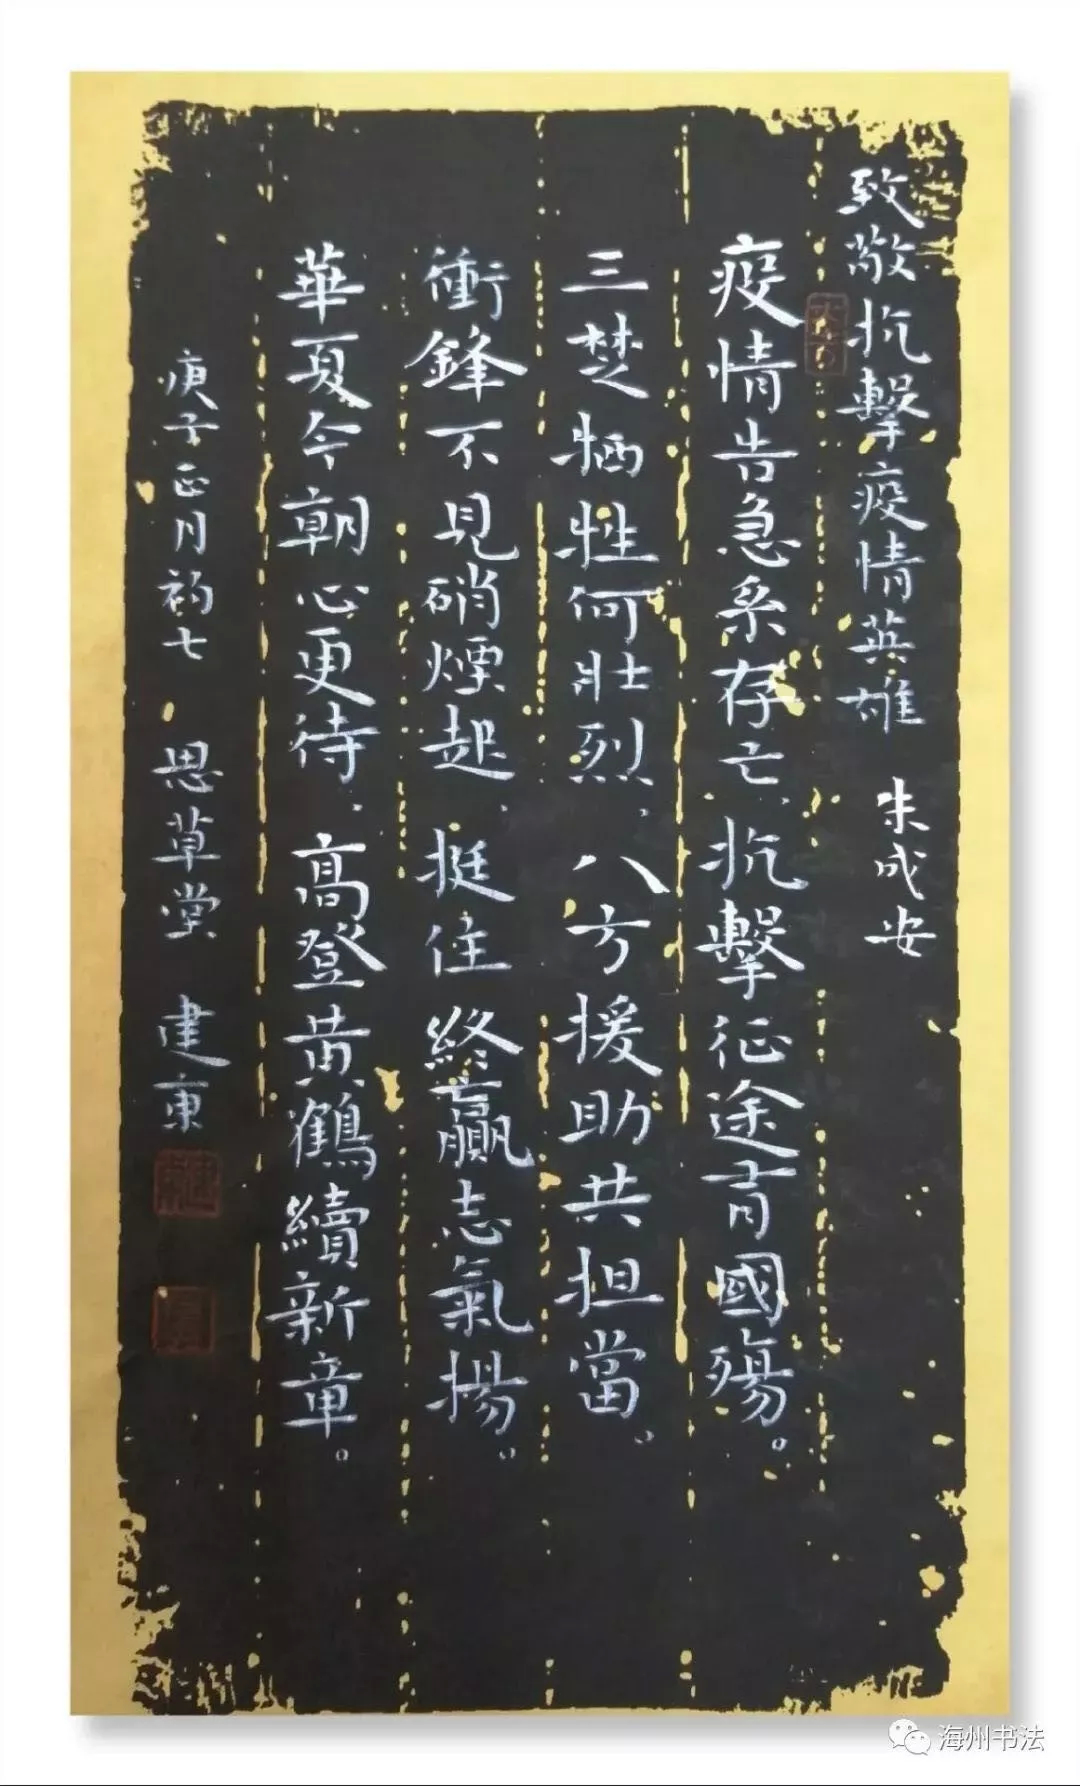 致敬抗擊疫情英雄 朱成安
疫情告急系存亡、抗擊征途有國殤。
三楚牺牲何壯烈、八方援助共担當。
衝鋒不見硝煙起、挺住終贏志氣揚。
華夏今朝心更待、高登黄鶴續新章。
庚子正月初七 思草堂 建東
海州书法